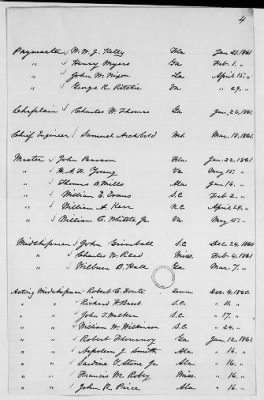 4
Paymaster W. W. J. Kelly Fla Jan 21. 1861
" Henry Myers Ga Feb 1. "
" John W. Nixon La April 15. "
" George R. Ritchie Va " 29. "
Chaplain Charles W. Thomas Ga Jan 26. 1861
Chief Engineer Samuel Archbold Mar. 18. 1861
Master John Pearson Jan 22. 1861
" Young Va May 15. "
" Thomas B. Mills Ala Jan 16. "
" William E. Evans S.C Feb 2. "
" William A. Kerr N.C April 24. "
" William C. Whittle Jr. Va May 15. "
Midshipman John Grimball S.C Dec 24. 1860
" Charles W. Read Miss. Feb 4. 1861
" Wilburn B. Hall Ga Mar 7. "
Acting Midshipman Robert C. Foute Tenn Dec 4. 1860.
" " Richard H. Bacot S.C " 11. "
" " John S.C. " 17. "
" " William W. Wilkinson S.C. " 24. "
" " Robert Flournoy Ga Jan 12. 1861
" " Napoleon J. Smith Ala " 16. "
" " Sardine G. Stone Jr. Ala " 16. "
" " Francis M. Roby Miss. " 16. "
" " John R. Price Ala " 16. "